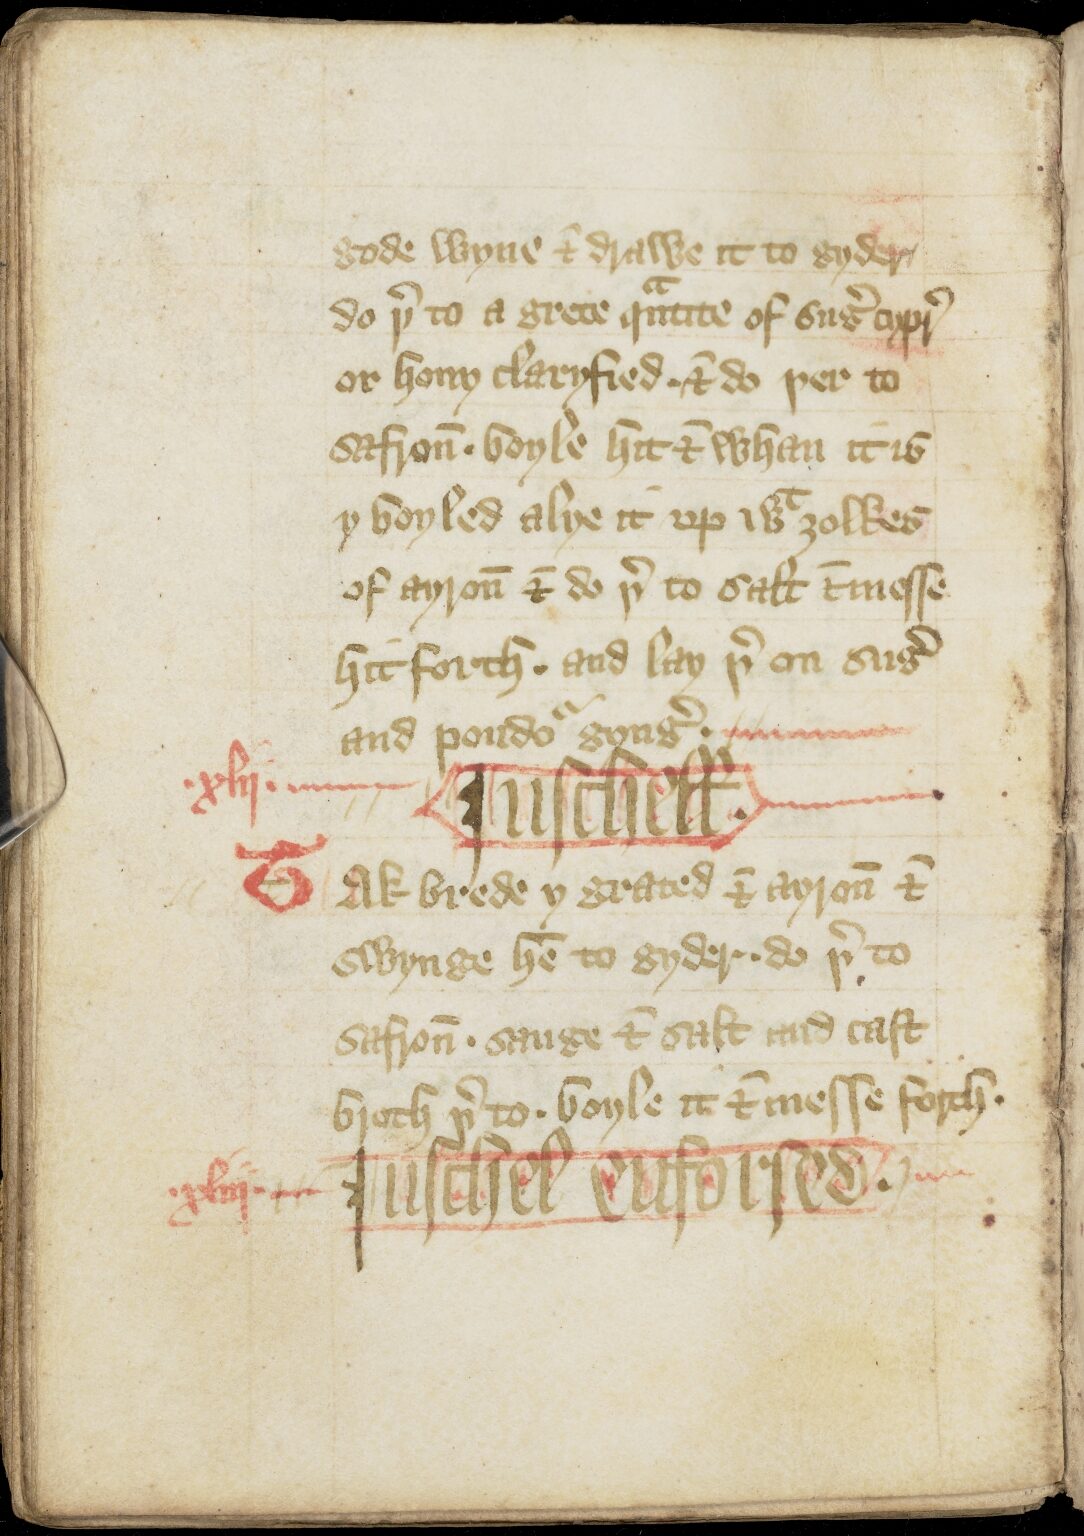 gode wyne & drawe it to gyder
do þ̉ to a grete qᵃntite of sug̉ cypr̉
or hony claryfied · & do þer to
safron̄ · boyle hit & whan it is
y boyled alye it vp wᵗ ȝolkes
of ayron̄ & do þ̉ to salt & messe
hit forth · and lay þ̉ on sug̉
and poudoᵘ gyng̉ ·
·xlij· Iuschell ·
TAk brede y grated & ayron̄ &
swynge hē to gyder · do þ̉ to
safron̄ · sauge & salt and cast
broth þ̉ to · boyle it & messe forth ·
·xliij· Iuschel enforsed ·